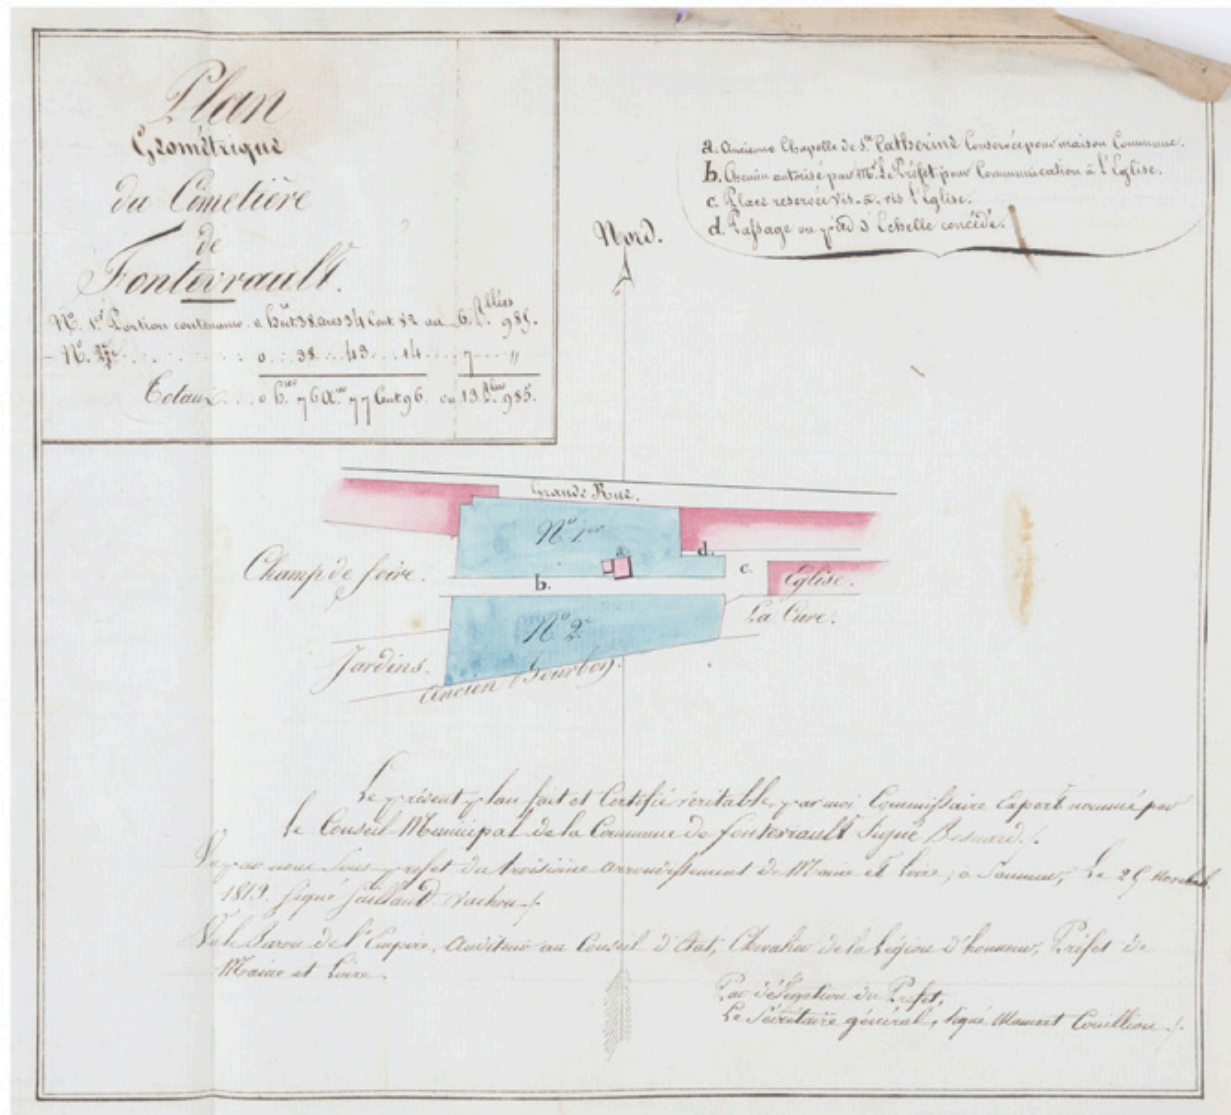 Plan
Géométrique
du Cimetière
de
Fontevrault.
N.º 1.er Portion contenance. 0 hect 38 ares 34 Cent 82 ou 6. 985.
N.º 2.e . . . 0 . . 38 . . 43 . . 14 . . . . 7 . . . "
Totaux . . . 0 h. 76 a. 77 Cent 96 ou 13. 985.
a. Ancienne Chapelle de S.te Catherine Conservée pour maison Commune.
b. Chemin autorisé par M.r Le Préfet pour Communication à l'Eglise.
c. Place reservée vis-à-vis l'Eglise.
d. Passage ou pied d'Echelle concédé.
Nord.
Grande Rue.
N.º 1.er
a.
d.
Champ de foire.
b.
c.
Eglise.
N.º 2.
La Cure.
Jardins.
Ancien Bourbon.
Le présent plan fait et Certifié véritable, par moi Commissaire Expert nommé par
le Conseil Municipal de la Commune de fontevrault Signé Besnard ./.
Vu par nous Sous-prefet du troisième arrondissement de Maine et Loire, à Saumur, Le 25
1813. Signé
Vu le Baron de l'Empire, Auditeur au Conseil d'Etat, Chevalier de la Légion d'honneur, Préfet de
Maine et Loire.
Par délégation du Prefet,
Le Sécrétaire général, signé